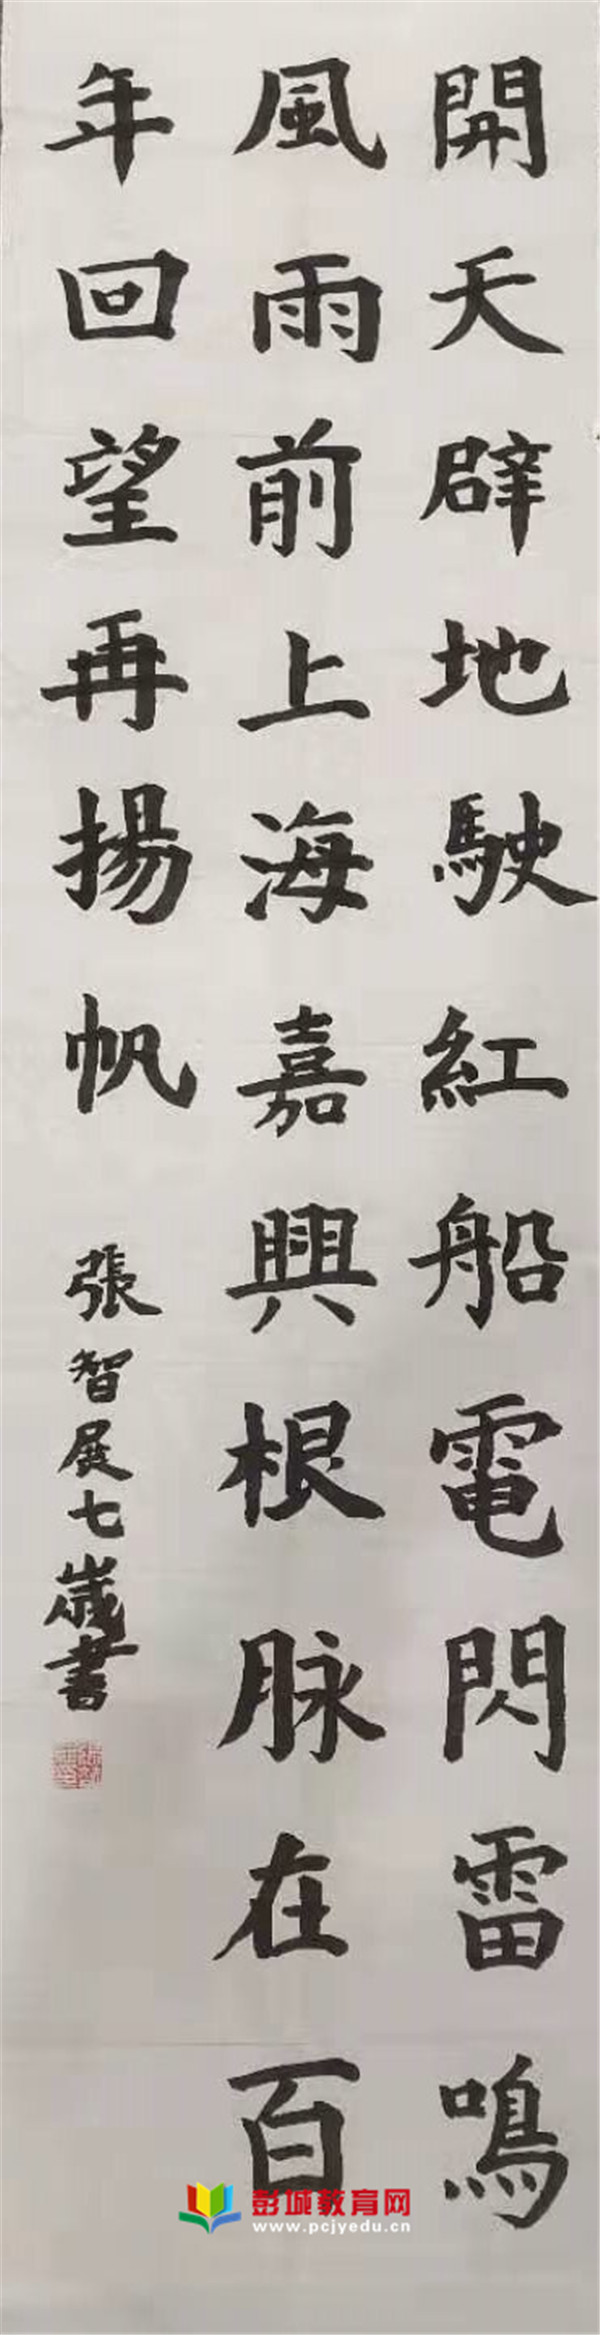 開天辟地駛紅船電閃雷鳴
風雨前上海嘉興根脉在百
年回望再揚帆
張智展七歲書
彭城教育网
www.pcjyedu.cn